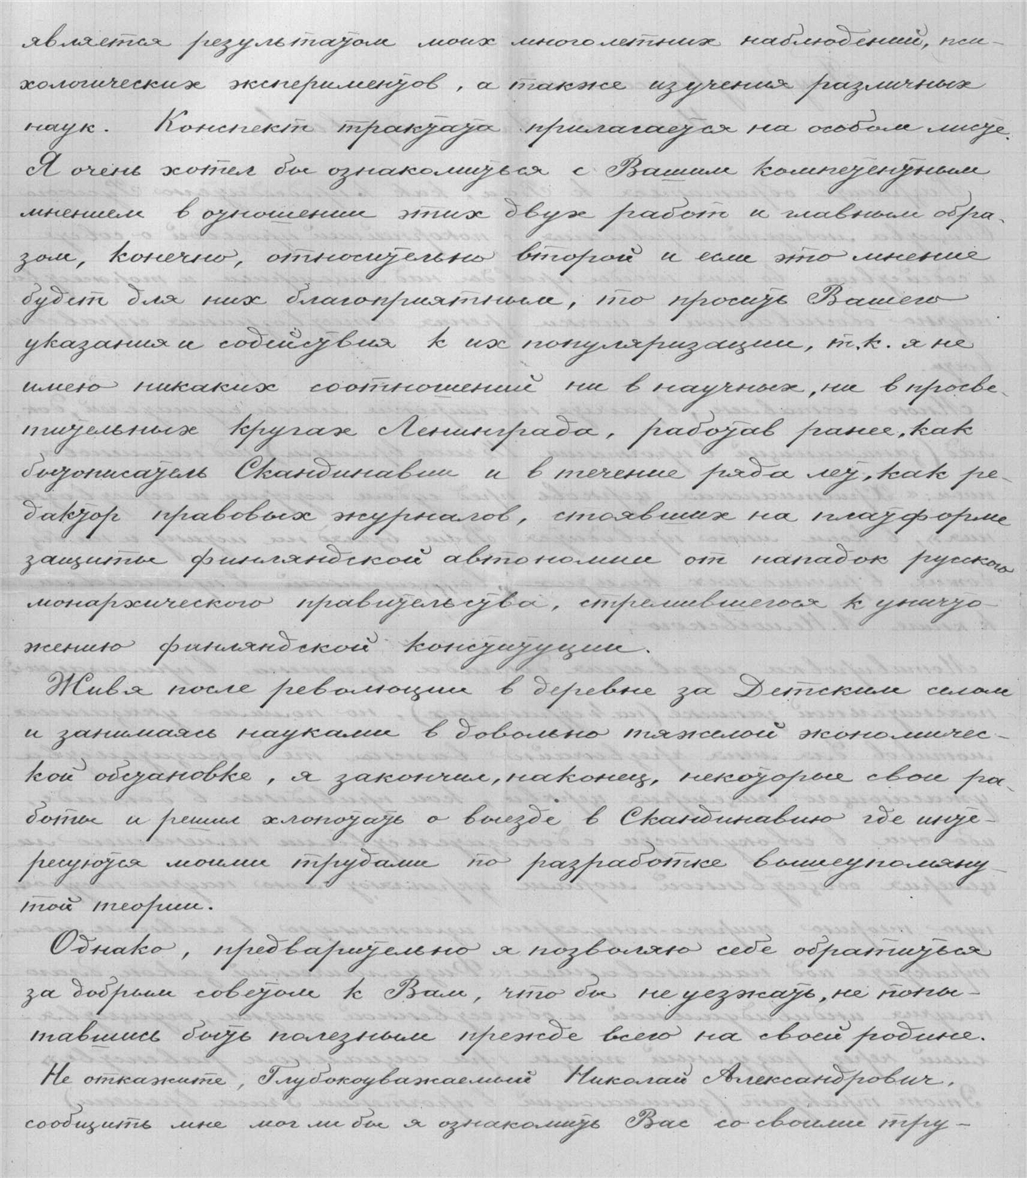 является результатом моих многолетних наблюдений, пси-
хологических экспериментов, а также изучения различных
наук. Конспект трактата прилагается на особом листе.
Я очень хотел бы ознакомиться с Вашим компетентным
мнением в отношении этих двух работ и главным обра-
зом, конечно, относительно второй и если это мнение
будет для них благоприятным, то просить Вашего
указания и содействия к их популяризации, т.к. я не
имею никаких соотношений ни в научных, ни в просве-
тительных кругах Ленинграда, работав ранее, как
бытописатель Скандинавии и в течение ряда лет, как ре-
дактор правовых журналов, стоявших на платформе
защиты финляндской автономии от нападок русского
монархического правительства, стремившегося к уничто-
жению финляндской конституции.
Живя после революции в деревне за Детским селом
и занимаясь науками в довольно тяжелой экономичес-
кой обстановке, я закончил, наконец, некоторые свои ра-
боты и решил хлопотать о выезде в Скандинавию где инте-
ресуются моими трудами по разработке вышеупомяну
той теории.
Однако, предварительно я позволяю себе обратиться
за добрым советом к Вам, что бы не уезжать, не попы-
тавшись быть полезным прежде всего на своей родине.
Не откажите, Глубокоуважаемый Николай Александрович,
сообщить мне мог ли бы я ознакомить Вас со своими тру-